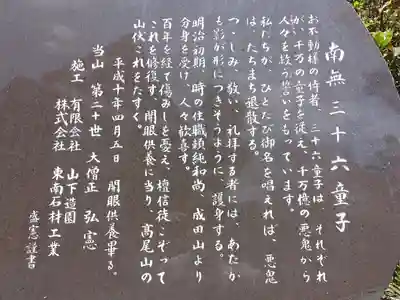 南無三十六童子
お不動様の侍者、三十六童子は、それぞれ
が、千万の童子を従え、千万億の悪鬼から
人々を救う誓いをもっています。
私たちが、ひとたび御名を唱えれば、悪鬼
は、たちまち退散する。
つゝしみ、敬い、礼拝する者には、あたか
も影が形につきそうように、護身する。
明治初期、時の住職頼純和尚、成田山より
分身を受け、人々歓喜す。
百年を経て傷みしを憂え、檀信徒こぞって
これを修復す、開眼供養に当り、高尾山の
山伏これをたすく。
平成十年四月五日 開眼供養畢る。
当山 第二十世 大僧正 弘憲
施工 有限会社 山下造園
株式会社 東南石材工業
盛憲謹書